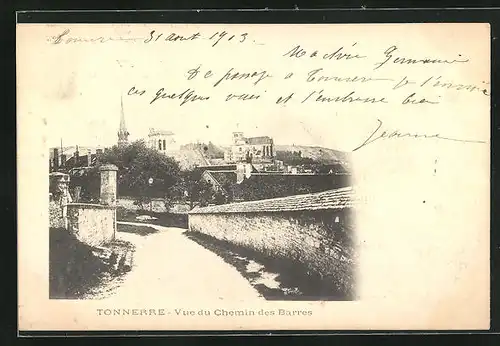 Tonnerre 31 août 1903.
Ma chère Germaine
De passage à Tonnerre je t'envoie
ces quelques vues et t'embrasse bien
Jeanne
TONNERRE - Vue du Chemin des Barres